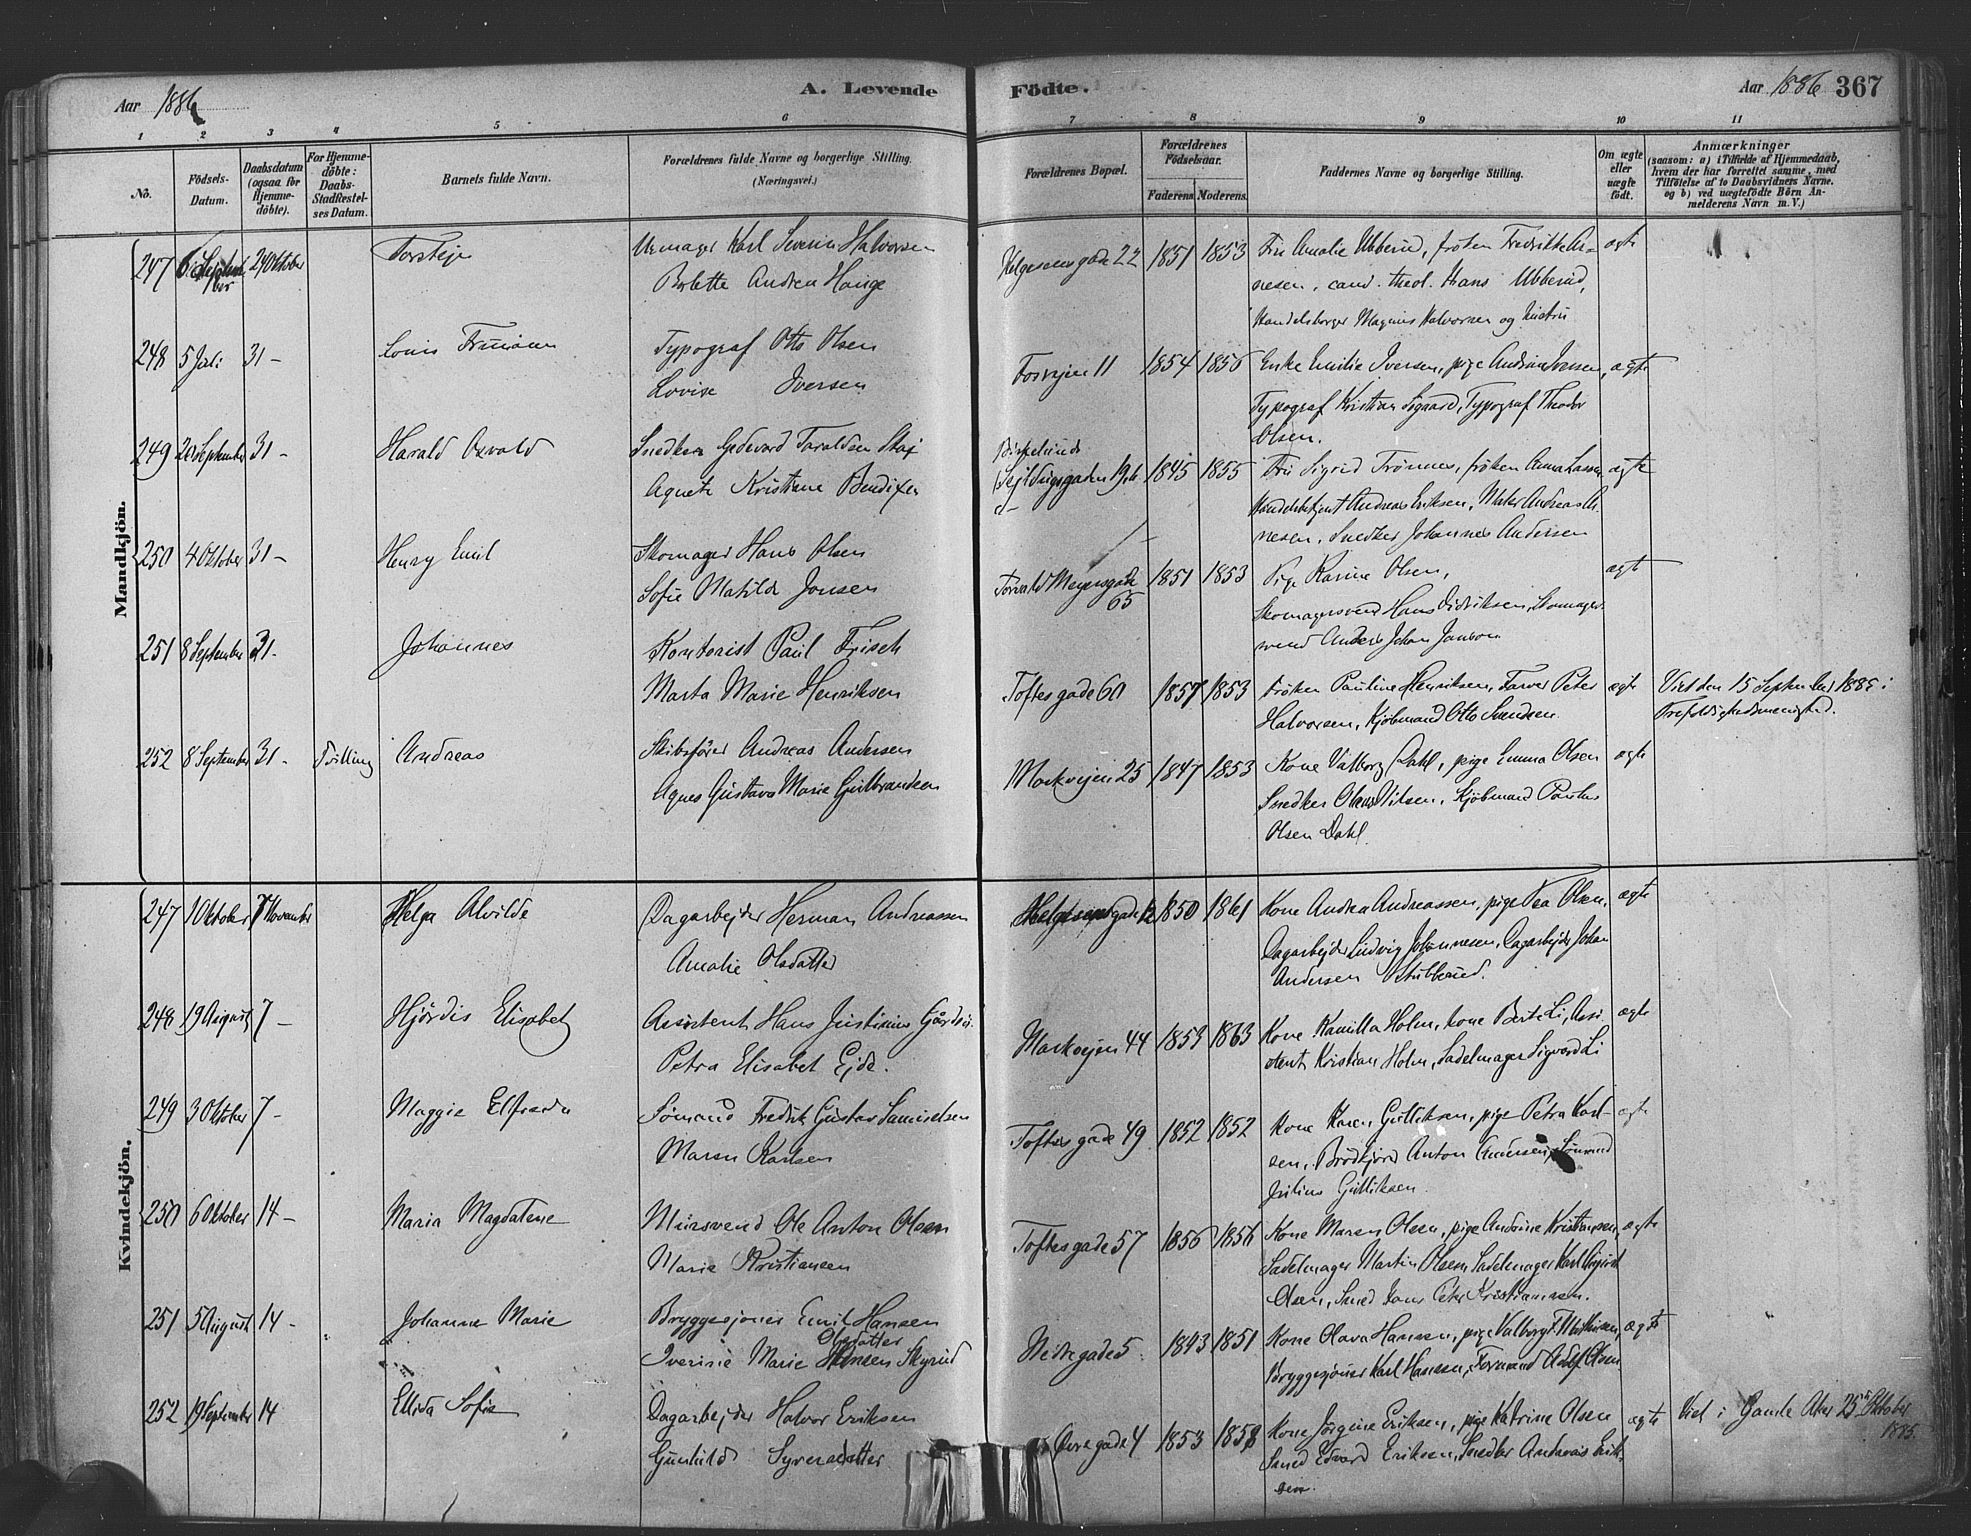 Aar 1886
A. Levende
Fødte.
Aar 1886 367
1 2 3 4 5 6 7 8 9 10 11
No.
Fødsels-Datum.
Daabsdatum (ogsaa for Hjemmedøbte).
For Hjemmedøbte: Daabs-Stadfæstelses Datum.
Barnets fulde Navn.
Forældrenes fulde Navne og borgerlige Stilling.
(Næringsvei.)
Forældrenes Bopæl.
Forældrenes Fødselsaar.
Faderens. Moderens.
Faddernes Navne og borgerlige Stilling.
Om ægte eller uægte født.
Anmærkninger
(saasom: a) i Tilfælde af Hjemmedaab,
hvem der har forrettet samme, med
Tilføielse af to Daabsvidners Navne.
og b) ved uægtefødte Børn An-
melderens Navn m. V.)
Mandkjön.
247 6 September 24 Oktober Torstein Urmager Karl Severin Halvorsen Helgesensgade 22 1851 1853 Fru Amalie Ubberud, frøken Fredrikke Ar- ægte
Bolette Andrea Hauge nesen, cand. theol. Hans Ubberud,
Handelsborger Magnus Halvorsen og Hustru
248 5 Juli 31 - Louis Typograf Otto Olsen Fosvejen 11 1854 1856 Enke Emilie Iversen, pige Andrina Iversen, ægte
Lovise Iversen Typograf Kristian Sogaard, Typograf Theodor
Olsen.
249 September 31 - Harald Osvald Snedker Gedevard Taraldsen Birkelunds 1845 1855 Fru Sigrid Trønnes, frøken Anna Larsen, ægte
Agnete Kristiane Bendixen Handelsbetjent Andreas Eriksen, Maler Andreas Ar-
nesen, Snedker Johannes Andersen
250 4 Oktober 31 - Henry Emil Skomager Hans Olsen Torvald Meyersgade 65 1851 1853 Pige Karine Olsen, ægte
Sofie Matilde Jonsen Skomagersvend Hans Didriksen, Skomager-
svend Anders Johan Janson
251 8 September 31 - Johannes Kontorist Paul Frisch Toftesgade 60 1857 1853 Frøken Pauline Henriksen, Farver Peter ægte Viet den 15 September 1885 i
Marta Marie Henriksen Halvorsen, Kjøbmand Otto Svendsen Trefoldighedsmenighed.
252 8 September 31 - Tvilling Andreas Skibsfører Andreas Andersen Markvejen 25 1847 1853 Kone Valborg Dahl, pige Emma Olsen ægte
Agnes Gustava Marie Gulbrandsen Snedker Olaus Nilsen, Kjøbmand Paulus
Olsen Dahl.
Kvindekjön.
247 1 Oktober 7 November Helga Alvilde Dagarbejder Herman Andreassen Helgesensgade 12 1850 1861 Kone Andrea Andreassen, pige Thea Olsen, ægte
Amalie Olsdatter Dagarbejder Ludvig Johannesen, Dagarbejder Johan
Andersen Stubberud.
248 19 August 7 - Hjørdis Elisabet Assistent Hans Justinius Markvejen 44 1859 1863 Kone Kamilla Holm, kone Berte Li, Assi- ægte
Petra Elisabet Ejde. stent Kristian Holm, Sadelmager Sigvard Li
249 3 Oktober 7 - Maggie Elfreda Sømand Fredrik Gustav Samuelsen Toftesgade 49 1852 1852 Kone Karen Gulliksen, pige Petra Karl- ægte
Maren Karlsen sen, Brødkjører Anton Andersen, Sømand
Julius Gulliksen.
250 6 Oktober 14 - Maria Magdalene Mursvend Ole Anton Olsen Toftesgade 57 1856 1856 Kone Maren Olsen, pige Andrine Kristiansen, ægte
Marie Kristiansen Sadelmager Martin Olsen, Sadelmager Karl August
Olsen, Smed Hans Peter Kristiansen.
251 5 August 14 - Johanne Marie Bryggesjouer Emil Hansen Nedregade 5 1843 1851 Kone Olava Hansen, pige Valborg ægte
Iverine Marie Olesdatter Skjerud Bryggesjouer Karl Hansen, Formand Adolf Olsen
252 19 September 14 Ellida Sofie Dagarbejder Halvor Eriksen Øvregade 4 1853 1858 Kone Jørgine Eriksen, pige Katrine Olsen ægte Viet i Gamle Aker 25 Oktober
1885.
Gunhild Syversdatter Smed Edvard Eriksen, Snedker Andreas Erik-
sen.